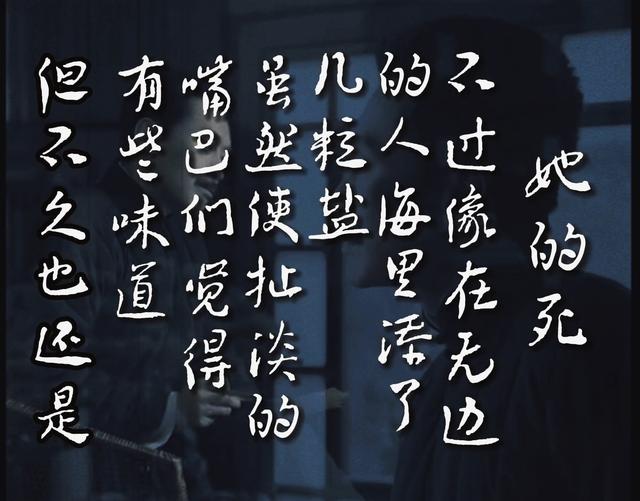 她的死
不过像在无边
的人海里添了
几粒盐
虽然使扯淡的
嘴巴们觉得
有些味道
但不久也还是